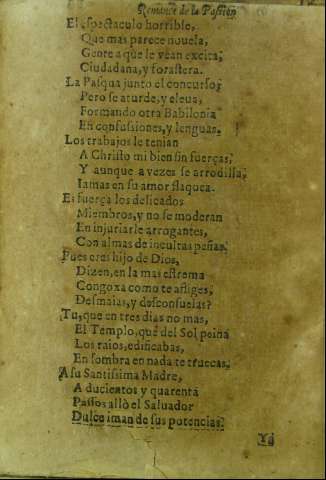 Romance de la Passion
El espectaculo horrible,
Que mas parece nouela,
Gente a que le vean excita,
Ciudadana, y forastera.
La Pasqua junto el concurso,
Pero se aturde, y eleua,
Formando otra Babilonia
En confussiones, y lenguas.
Los trabajos le tenian
A Christo mi bien sin fuerças,
Y aunque a vezes se arrodilla,
Iamas en su amor flaquea.
Es fuerça los delicados
Miembros, y no se moderan
En injuriarle arrogantes,
Con almas de incultas peñas.
Pues eres hijo de Dios,
Dizen, en la mas estrema
Congoxa como te afliges,
Desmaias, y desconsuelas?
Tu, que en tres dias no mas,
El Templo, que del Sol peina
Los raios, edificabas,
En sombra en nada te truecas.
A su Santissima Madre,
A ducientos y quarenta
Passos allò el Saluador
Dulce iman de sus potencias.
Ya